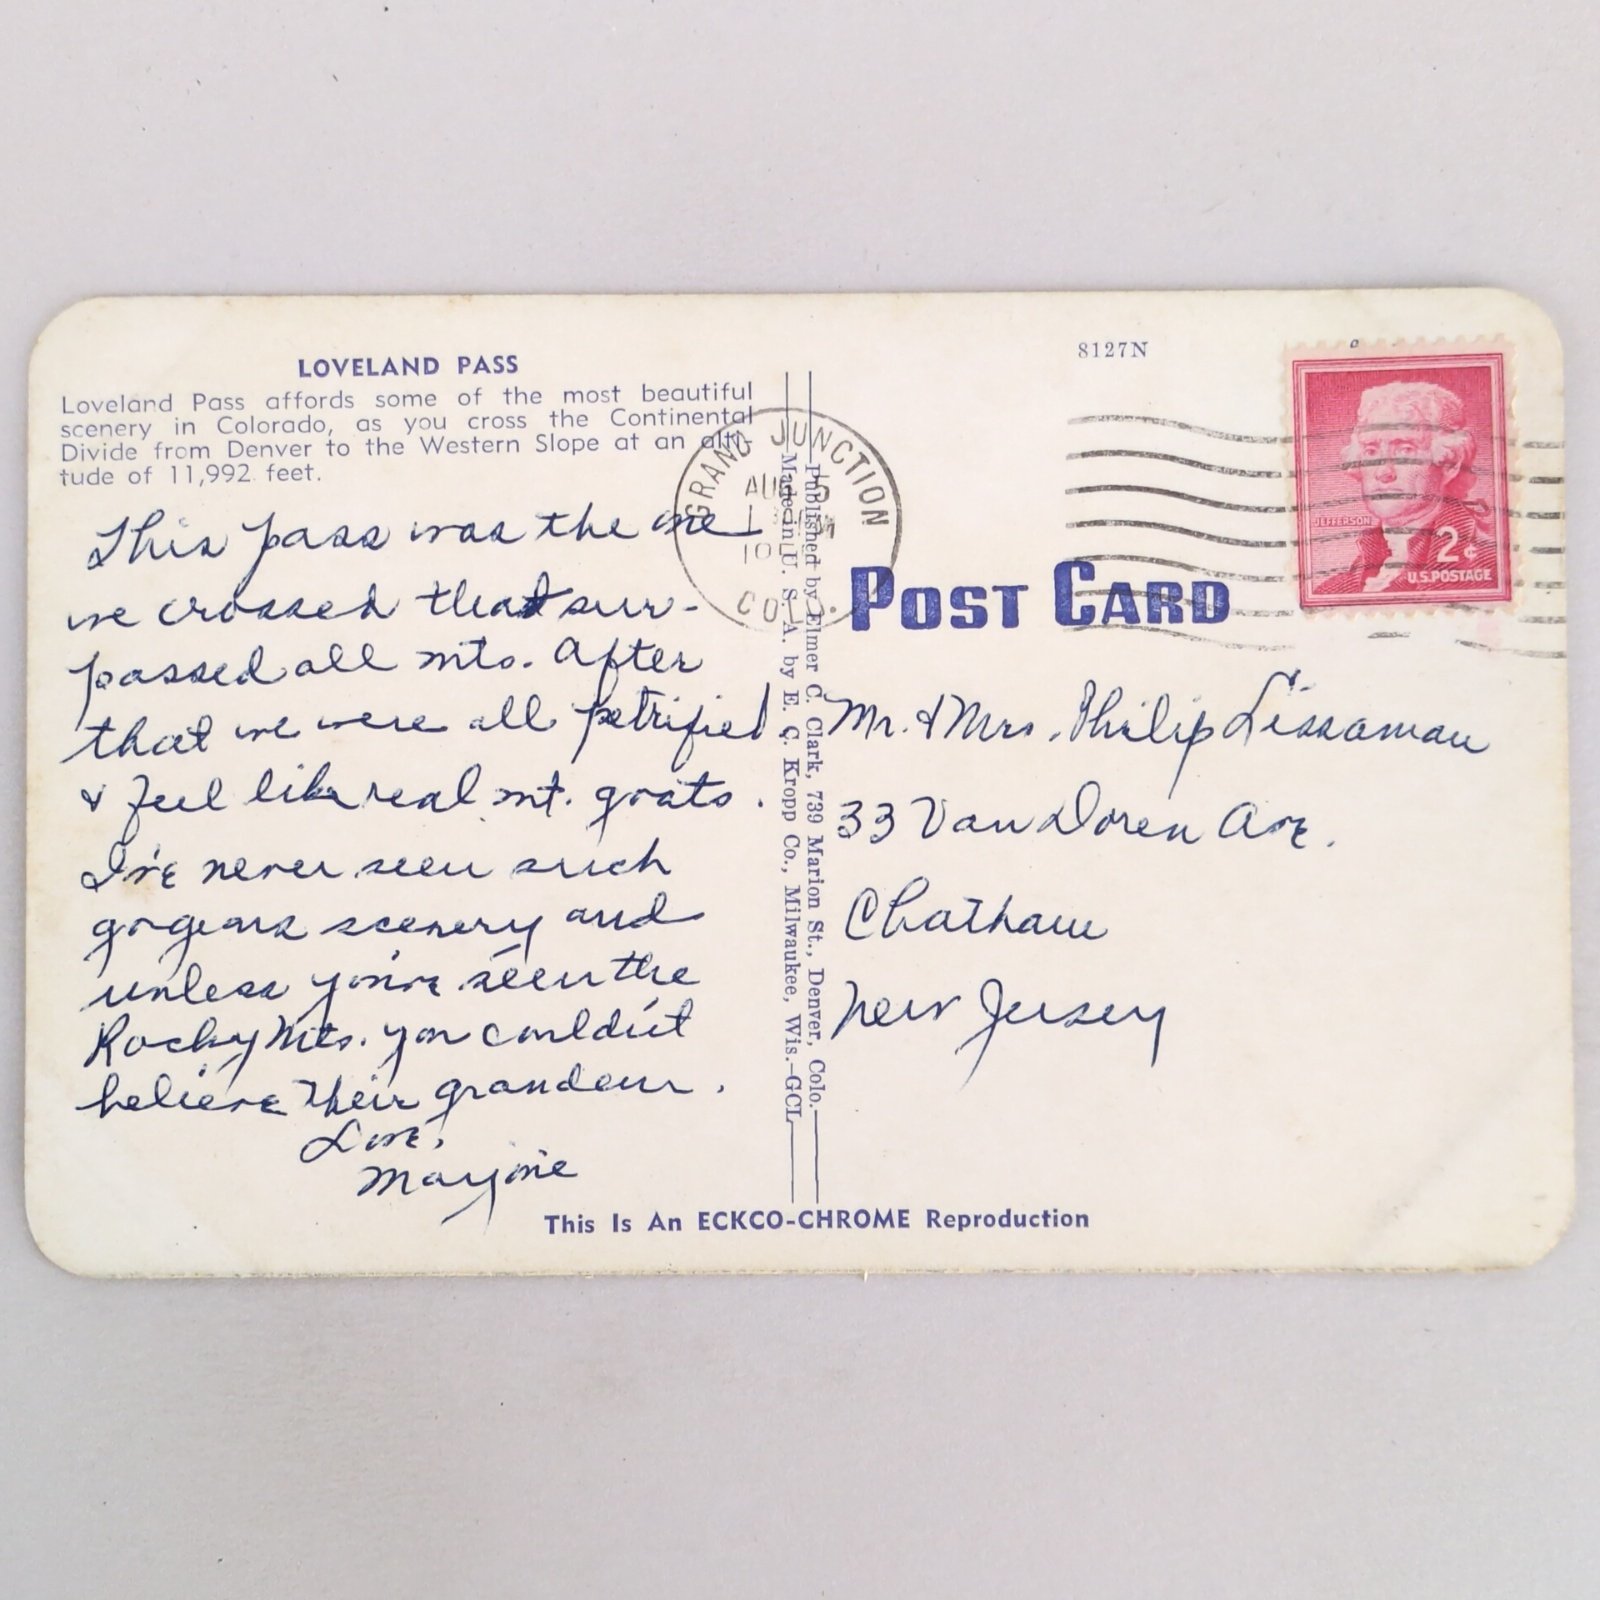 LOVELAND PASS
Loveland Pass affords some of the most beautiful
scenery in Colorado, as you cross the Continental
Divide from Denver to the Western Slope at an alti-
tude of 11,992 feet.
This pass was the one
we crossed that sur-
passed all mts. After
that we were all petrified
& feel like real mt. goats.
I've never seen such
gogeous scenery and
unless you've seen the
Rocky Mts. you couldn't
believe their grandeur.
Love,
Marjorie
Published by Elmer C. Clark, 739 Marion St., Denver, Colo.
Made in U. S. A. by E. C. Kropp Co., Milwaukee, Wis.-GCL
GRAND JUNCTION
AUG
COLO.
8127N
POST CARD
JEFFERSON
2¢
U.S. POSTAGE
Mr. & Mrs. Philip Lissaman
33 Van Doren Ave.
Chatham
New Jersey
This Is An ECKCO-CHROME Reproduction